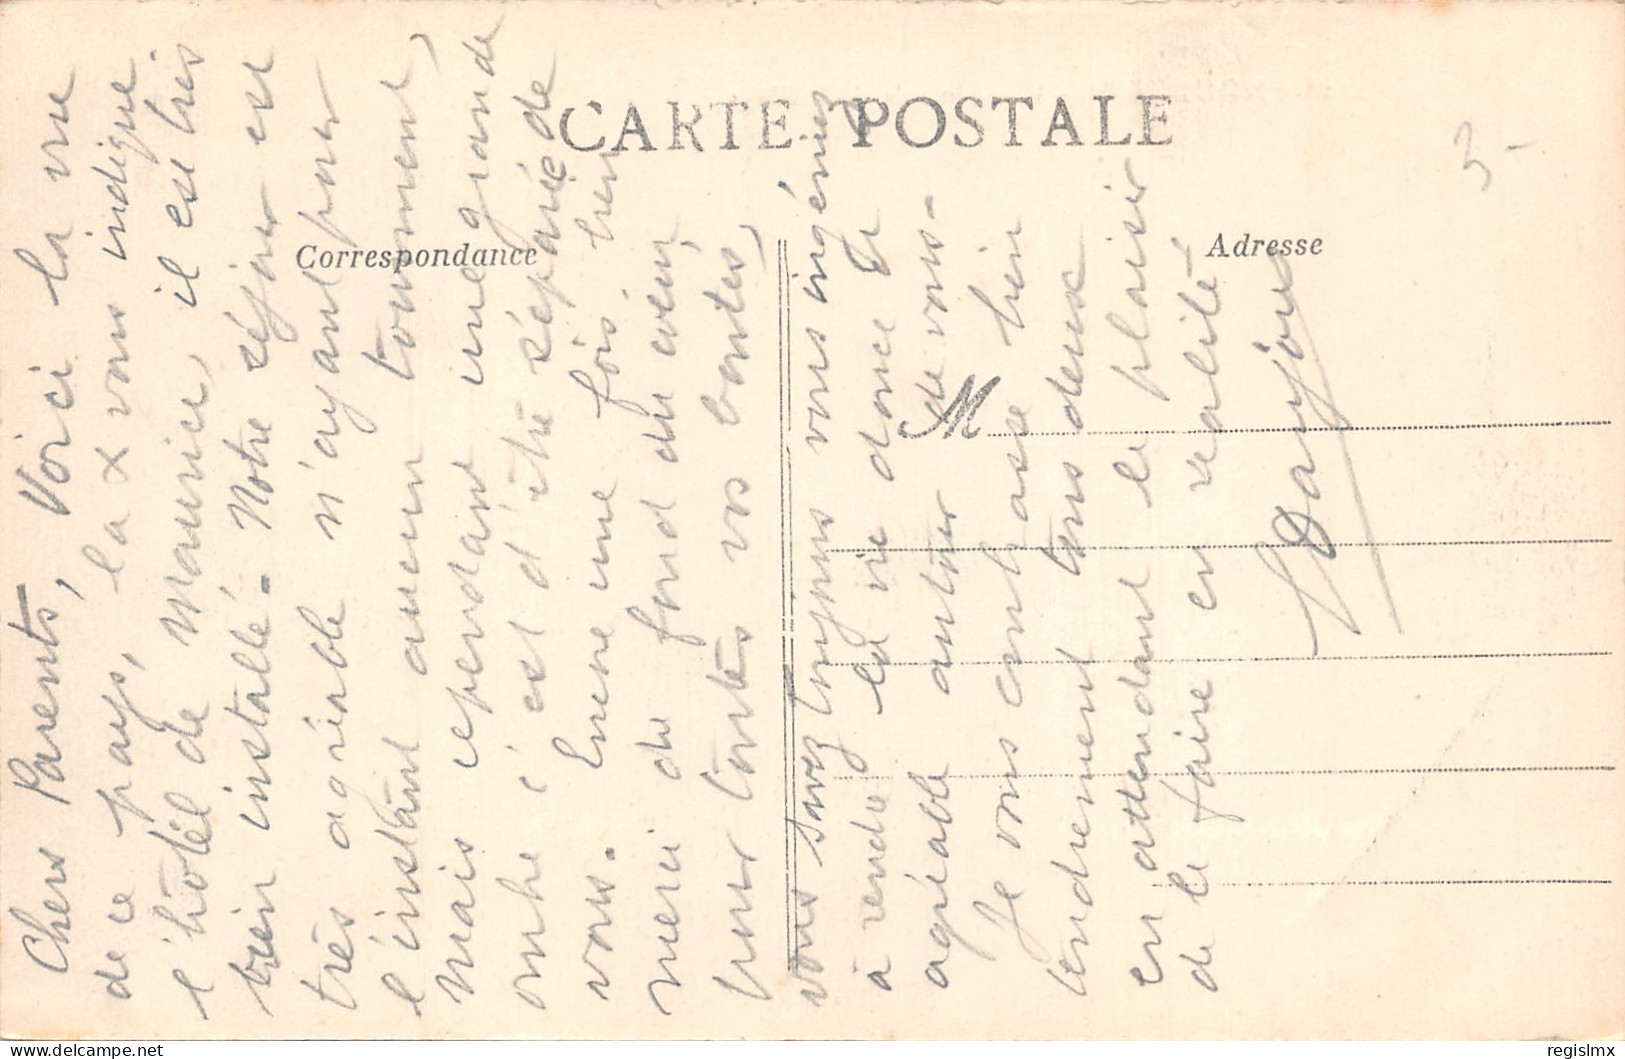 CARTE POSTALE
Correspondance
Adresse
M
3-
Chers Parents, Voici la vue
de ce pays, la x vous indique
l'hôtel de Maurice, il est très
bien installé. Notre séjour est
très agréable n'ayant pour
l'instant aucun tourment,
mais cependant une grande
ombre c'est d'être séparé de
vous. Encore une fois bien
merci du fond du cœur,
pour toutes vos bontés,
vous savez toujours vous ingénier
à rendre la vie douce et
agréable autour de vous.
Je vous embrasse bien
tendrement tous deux
en attendant le plaisir
de le faire en réalité
delcampe.net
regislmx